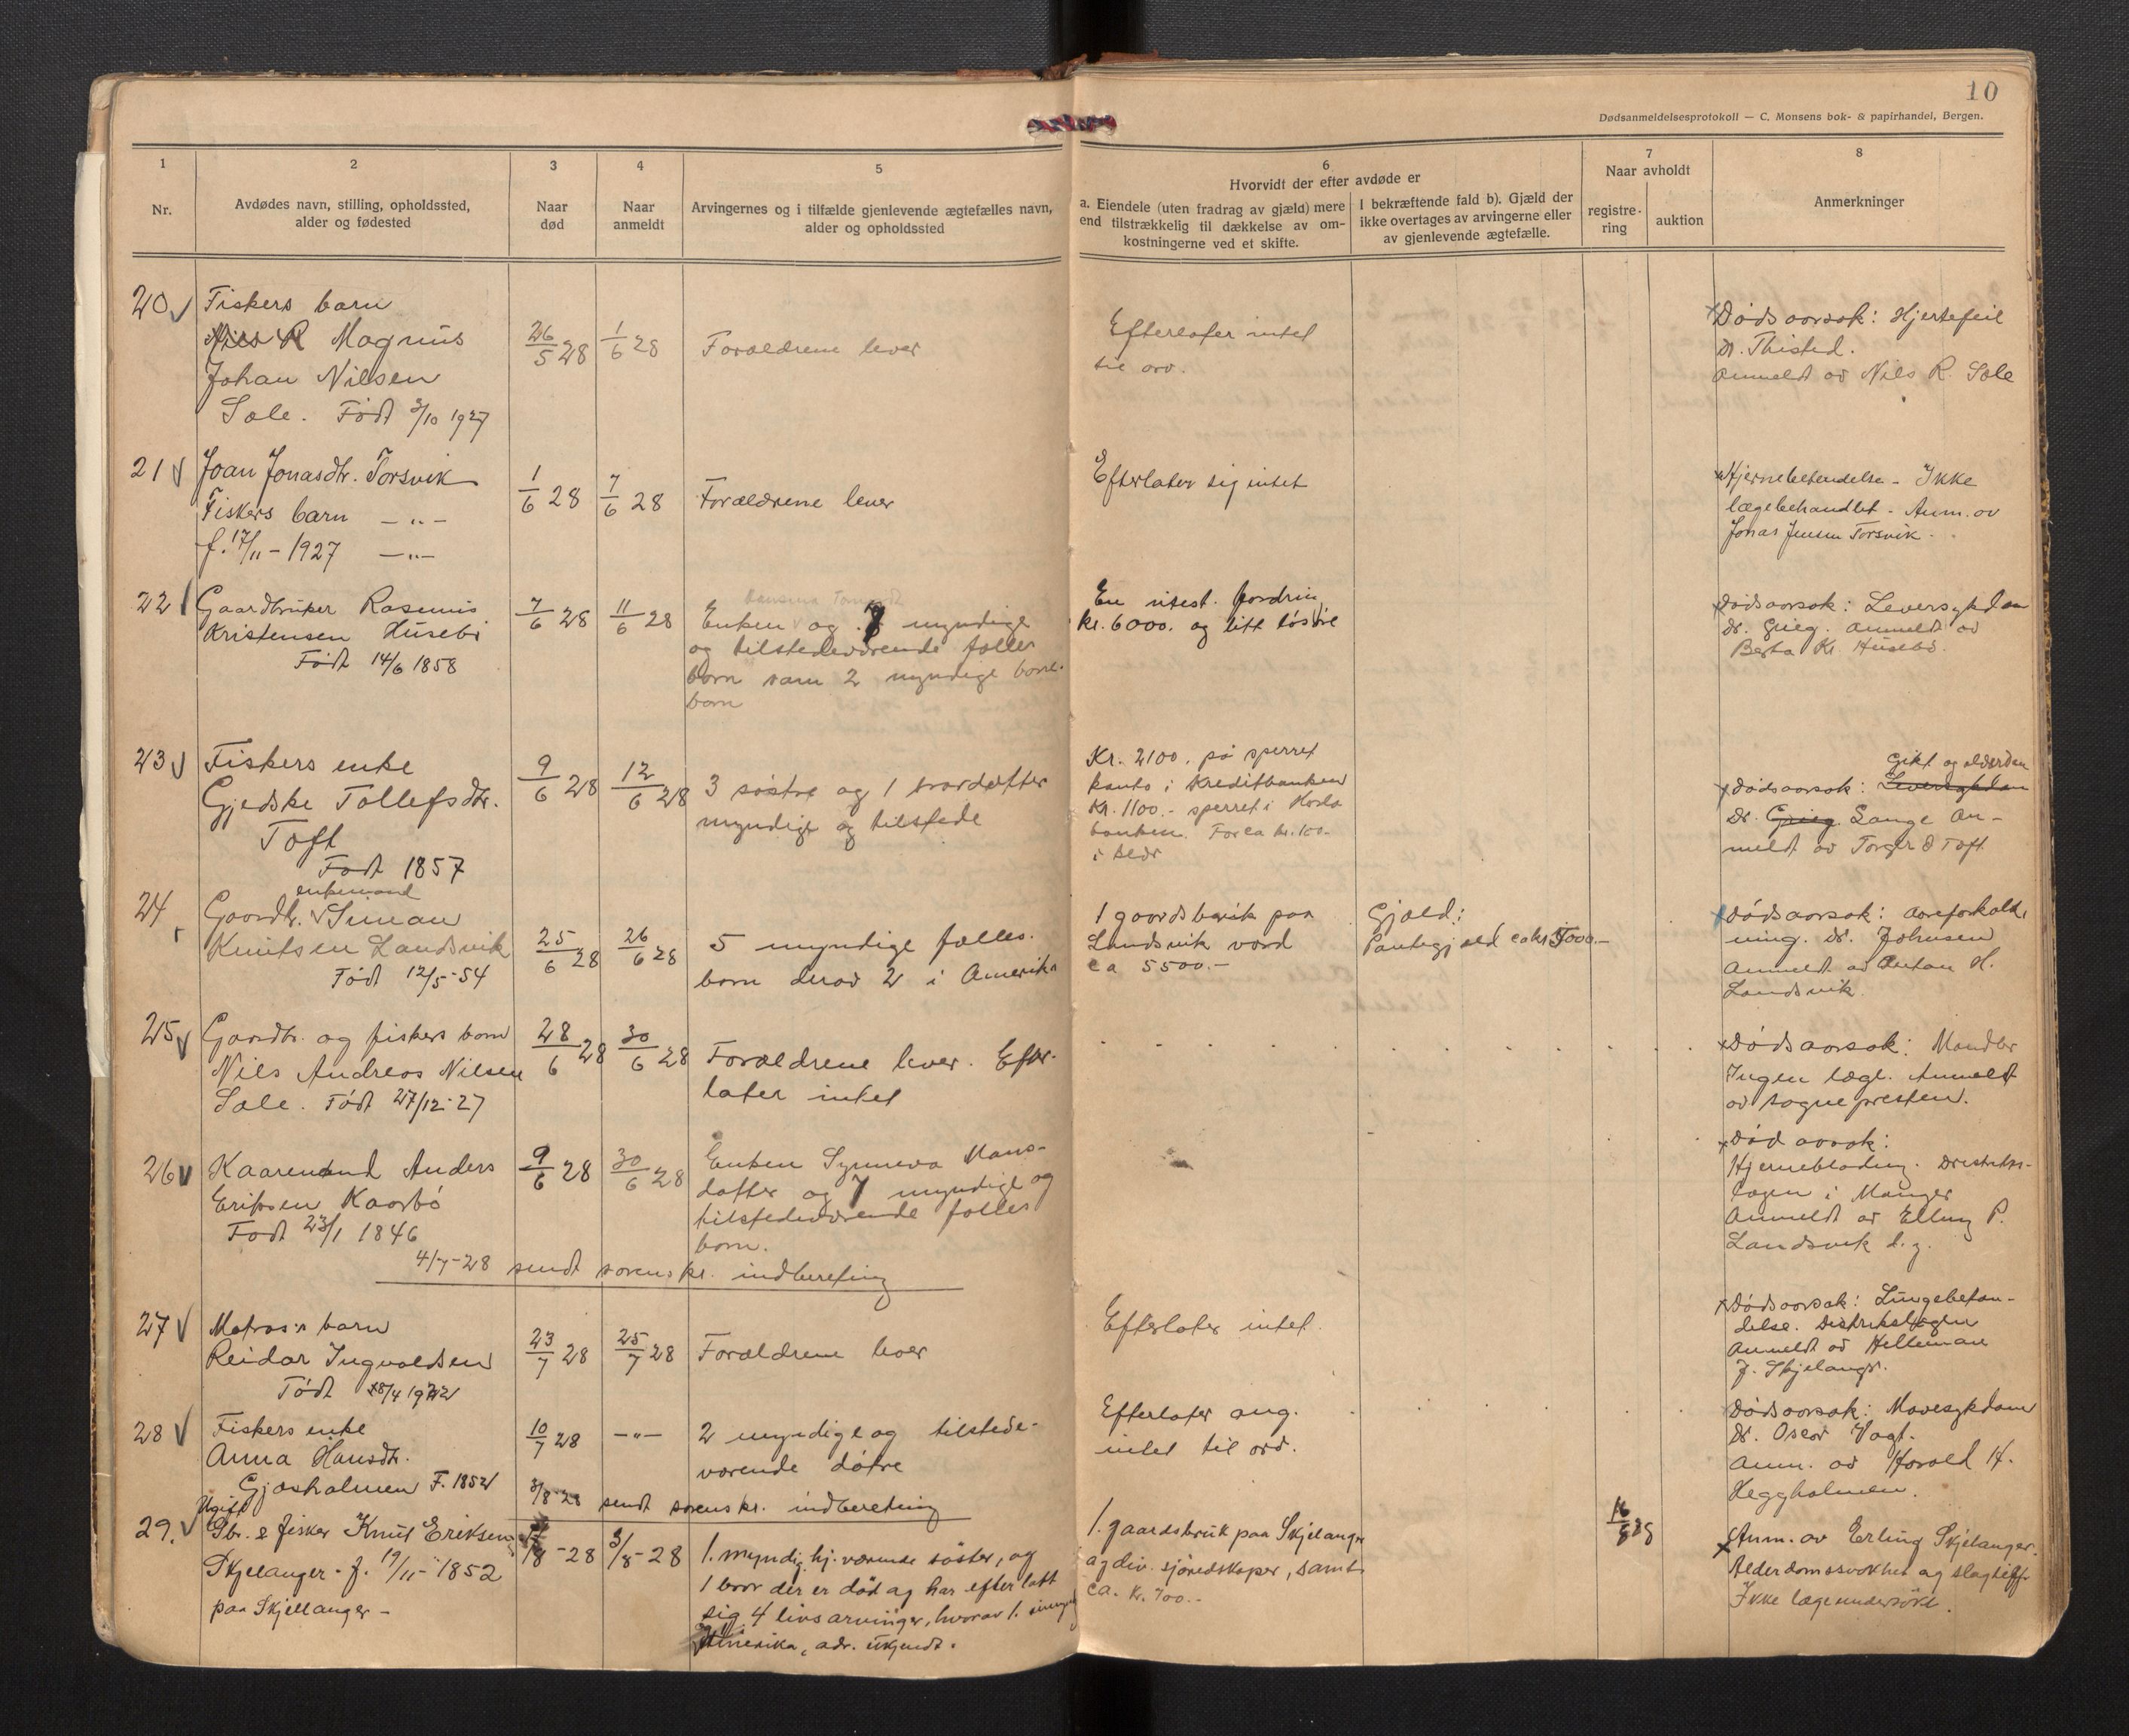 10
Dødsanmeldelsesprotokoll — C. Monsens bok- & papirhandel, Bergen.
1
2
3
4
5
6
7
8
Nr.
Avdødes navn, stilling, opholdssted,
alder og fødested
Naar
død
Naar
anmeldt
Arvingernes og i tilfælde gjenlevende ægtefælles navn,
alder og opholdssted
Hvorvidt der efter avdøde er
a. Eiendele (uten fradrag av gjæld) mere
end tilstrækkelig til dækkelse av om-
kostningerne ved et skifte.
I bekræftende fald b). Gjæld der
ikke overtages av arvingerne eller
av gjenlevende ægtefælle.
Naar avholdt
registre-
ring
auktion
Anmerkninger
20
Fiskers barn
Magnus
Johan Nilsen
Sæle. Født 3/10 1927
26/5 28
1/6 28
Forældrene lever
Efterlater intet
til arv.
Dødsaarsak: Hjertefeil
Dr. Thisted.
Anmeldt av Nils R. Sæle
21
Joan Jonasdtr. Torsvik
Fiskers barn — " —
f. 17/11 - 1927 — " —
1/6 28
7/6 28
Forældrene lever
Efterlater sig intet
Hjernebetendelse - Ikke
lægebehandlet - Anm. av
Jonas Jensen Torsvik -
22
Gaardbruker Rasmus
Kristensen Husebø
Født 14/6 1858
7/6 28
11/6 28
Enken og 7 myndige
og tilstedeværende fælles
børn samt 2 myndige barne-
børn
En utest. fordrin
kr. 6000. og litt løsøre
Dødsaarsak: Leversykdom
Dr. Grieg. Anmeldt av
Berta Kr. Husebø.
23
Fiskers enke
Gjedske Tollefsdtr.
Toft
Født 1857
9/6 28
12/6 28
3 søstre og 1 brordatter
myndige og tilstede
Kr. 2100. på sperret
konto i Kreditbanken
Kr. 1100.- sperret i Hordabanken. Før ca kr. 100.-
Gikt og alderdom
Dødsaarsak: Leversykdom
Dr. Grieg. Lange An-
meldt av Torger O Toft
24
enkemand
Gaardbr. Siman
Knutsen Landsvik
Født 12/5-54
25/6 28
26/6 28
5 myndige fælles-
børn derav 2 i Amerika
1 gaardsbruk paa
Landsvik værd
ca 5500.-
Gjæld:
Pantegjæld ca kr 5000.-
Dødsaarsak: Aareforkalk-
ning. Dr. Johnsen
Anmeldt av Anton H.
Landsvik
25
Gaardbr. og fiskers barn
Nils Andreas Nilsen
Sæle. Født 27/12-27
28/6 28
30/6 28
Forældrene lever. Efter-
later intet
Dødsaarsak:
Ingen læge. Anmeldt
av sognepresten.
26
Kaarmand Anders
Eriksen Kaarbø
Født 23/1 1846
9/6 28
30/6 28
Enken Synneva Mons-
datter og 7 myndige og
tilstedeværende fælles
børn.
Død aarsak:
Hjerneblødning. Distrikts-
lægen i Manger
Anmeldt av Elling P.
Landsvik
4/7-28 sendt sorenskr. indberetning
27
Matros's barn
Reidar Ingvaldsen
Født 18/4 1922
23/7 28
25/7 28
Forældrene lever
Efterlater intet.
Dødsaarsak: Lungebeten-
delse. Distriktslægen
Anmeldt av Helleman
J. Skjelanger.
28
Fiskers enke
Anna Hansdtr.
Gjøsholmen F. 1852
10/7 28
— " —
2 myndige og tilstede-
værende døtre
Efterlater ang.
intet til arv.
Dødsaarsak: Mavesykdom
Dr. Oscar Vogt.
Anm. av Harald H.
Heggholmen.
3/8-28 sendt sorenskr. indberetning
29.
Ugift
Gbr. & fisker Knut Eriksen
Skjelanger - f. 19/11-1852
paa Skjellanger -
/8-28
3/8-28
1. myndig hj. værende søster, og
1 bror der er død og har efterlatt
sig 4 livsarvinger, hvorav 1.
Amerika, adr. ukjendt.
1. gaardsbruk paa Skjelanger
og div. sjøredskaper, samt
ca. Kr. 700.-
16/8 28
Anm. av Erling Skjelanger.
Alderdomssvakhet og slagtilf.
Ikke lægeundersøkt.